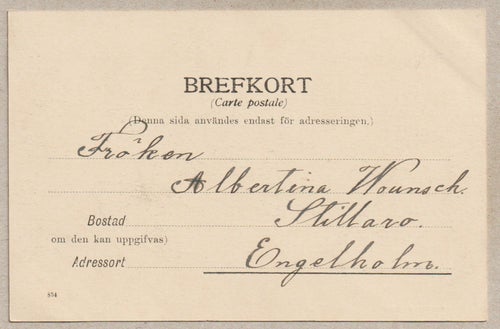 BREFKORT
(Carte postale)
(Denna sida användes endast för adresseringen.)
Fröken
Albertina Wounsch.
Bostad Stillaro.
om den kan uppgifvas)
Adressort Engelholm.
834